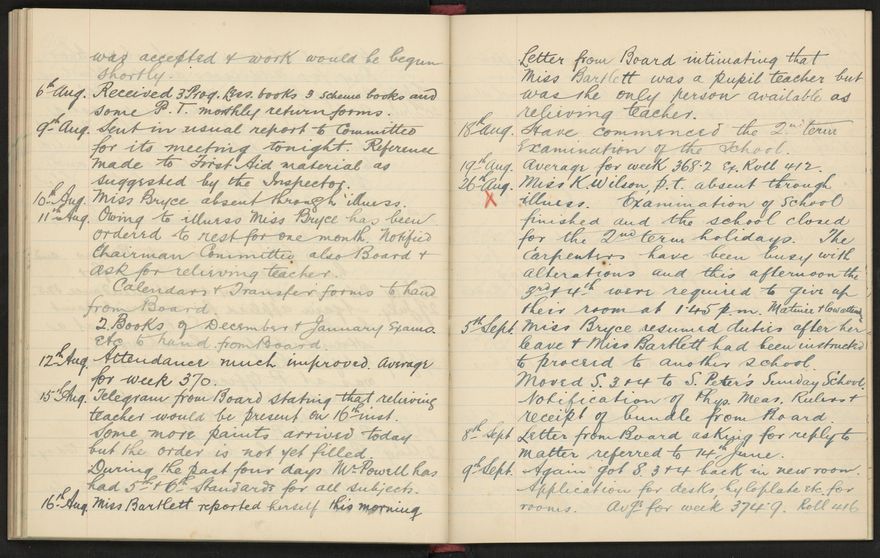 was accepted & work would be begun
shortly.
6th Aug. Received 3 Prog. Regs. books 3 scheme books and
some P. T. monthly return forms.
9th Aug. Sent in usual report to Committee
for its meeting tonight. Reference
made to First Aid material as
suggested by the Inspector.
10th Aug. Miss Bryce absent through illness.
11th Aug. Owing to illness Miss Bryce has been
ordered to rest for one month. Notified
Chairman Committee also Board &
ask for relieving teacher.
Calendars & Transfer forms to hand
from Board.
2 Books of December & January Exams.
etc to hand from Board.
12th Aug. Attendance much improved. Average
for week 370.
15th Aug. Telegram from Board stating that relieving
teacher would be present on 16th inst.
Some more paints arrived today
but the order is not yet filled.
During the past four days Mr Powell has
had 5th & 6th Standards for all subjects.
16th Aug. Miss Bartlett reported herself this morning
Letter from Board intimating that
Miss Bartlett was a pupil teacher but
was the only person available as
relieving teacher.
18th Aug. Have commenced the 2nd term
Examination of the School.
19th Aug. Average for week 368.2 Roll 412.
26th Aug. Miss K. Wilson, p.t. absent through
X illness. Examination of School
finished and the school closed
for the 2nd term holidays. The
carpenters have been busy with
alterations and this afternoon the
3rd & 4th were required to give up
their room at 1.45 p.m.
5th Sept. Miss Bryce resumed duties after her
leave & Miss Bartlett had been instructed
to proceed to another school.
Moved S. 3 & 4 to S. Peter's Sunday School
Notification of Phys. Meas. Rulers &
receipt of bundle from Board.
8th Sept Letter from Board asking for reply to
matter referred to 14th June.
9th Sept. Again got S. 3 & 4 back in new room.
Application for desks, hyloplate etc. for
rooms. Avge for week 374.9. Roll 416